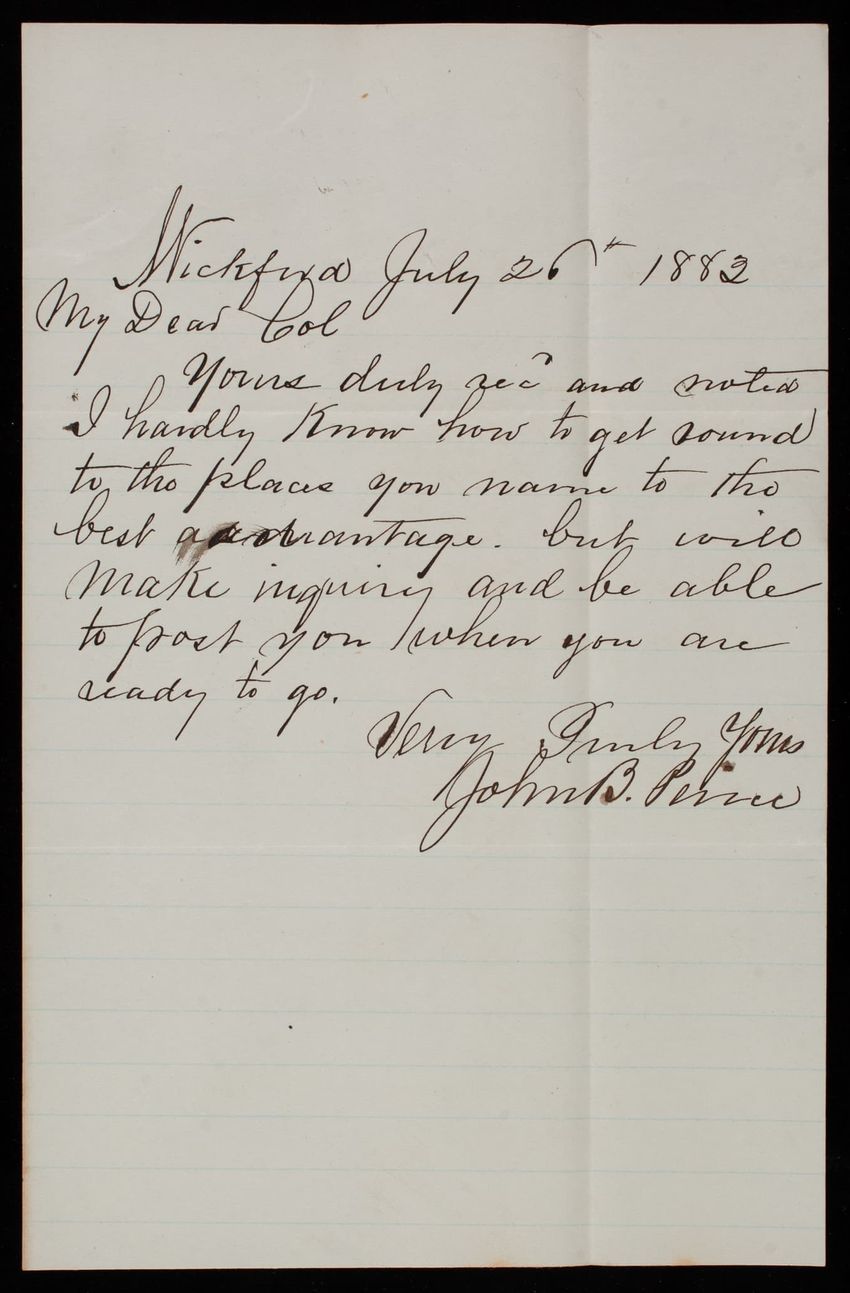 Wickford July 26th 1882
My Dear Col
Yours duly rec'd and noted
I hardly Know how to get round
to the places you name to the
best advantage. but will
make inquiry and be able
to post you when you are
ready to go.
Very Truly Yours
John B. Peirce